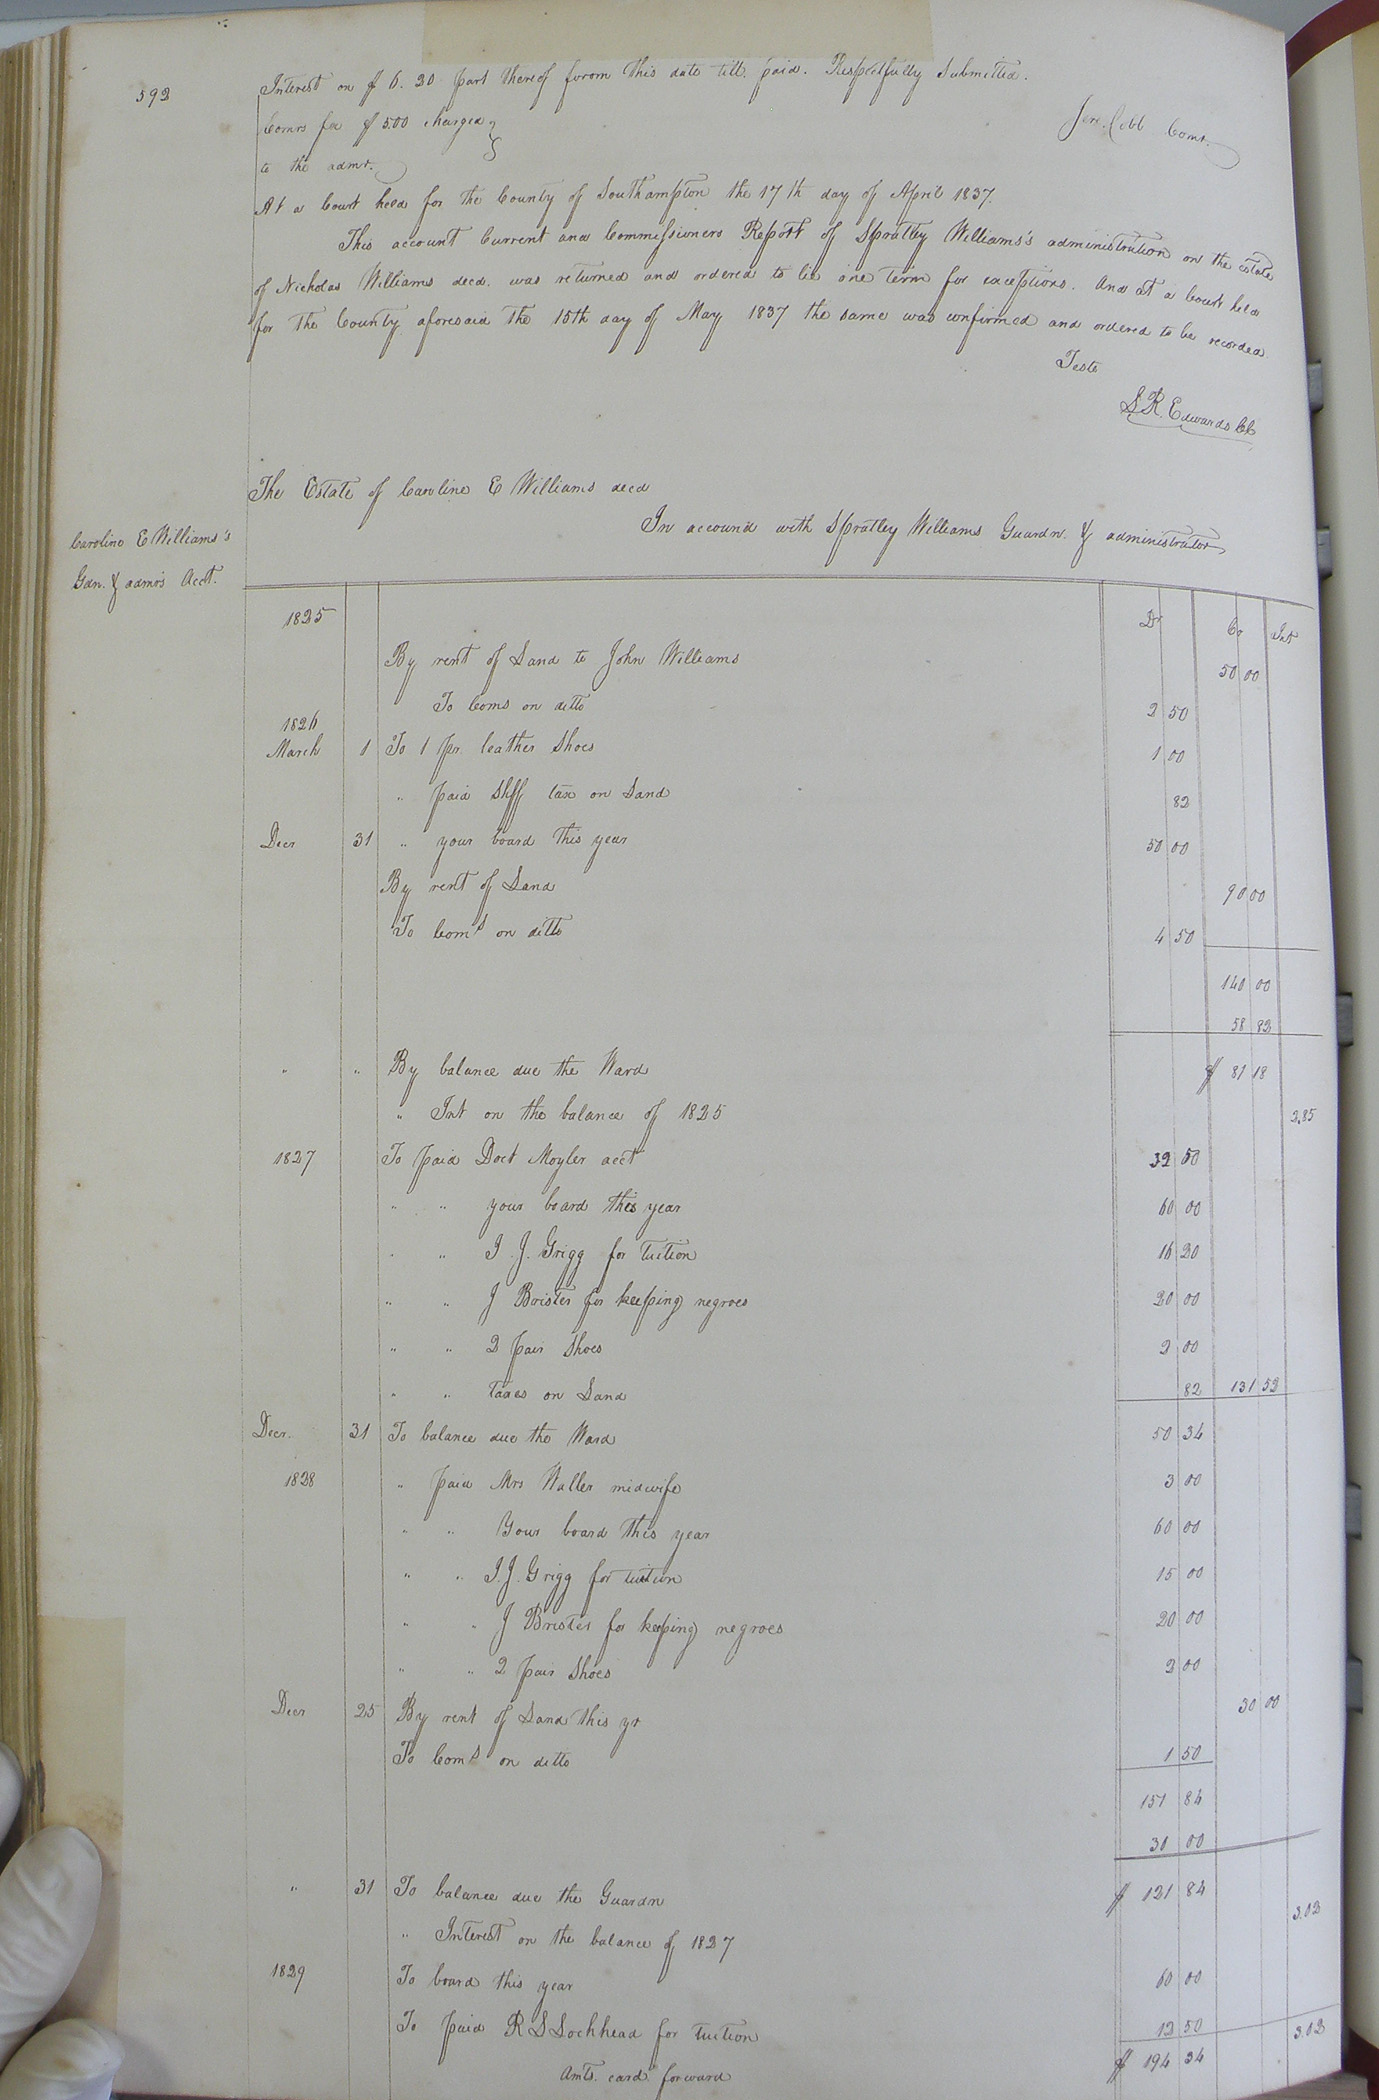 592
Interest on $ 6.20 part thereof furom this date till paid. Respectfully Submitted.
Comrs fee $ 5.00 charged }
to the admr.
Jere. Cobb Comr.
At a Court held for the County of Southampton the 17th day of April 1837.
This account Current and Commissioners Report of Spratley Williams's administration on the estate
of Nicholas Williams decd. was returned and ordered to lie one term for exceptions. And at a Court held
for the County aforesaid the 15th day of May 1837 the same was confirmed and ordered to be recorded
Teste
S R. Edwards Ck
The Estate of Caroline E Williams decd
In account with Spratley Williams Guardn. & administrator
Caroline E Williams's
Gdn. & admrs Acct.
1825 Dr Cr Int
By rent of Land to John Williams 50 00
To Coms on ditto 2 50
1826
March 1 To 1 pr. leather Shoes 1 00
" paid Shff tax on Land 82
Decr 31 " your board this year 50 00
By rent of Land 90 00
To Coms on ditto 4 50
140 00
58 82
" " By balance due the Ward $ 81 18
" Int on the balance of 1825 2.85
1827 To paid Doct Moyler acct 32 50
" " your board this year 60 00
" " I. J. Grigg for tuition 16 20
" " J Brister for keeping negroes 20 00
" " 2 pair Shoes 2 00
" " taxes on Land 82 131 52
Decr. 31 To balance due the Ward 50 34
1828 " paid Mrs Waller midwife 3 00
" " Your board this year 60 00
" " I. J. Grigg for tuition 15 00
" " J Brister for keeping negroes 20 00
" " 2 pair Shoes 2 00
Decr 25 By rent of Land this yr 30 00
To Coms on ditto 1 50
151 84
30 00
" 31 To balance due the Guardn $ 121 84
" Interest on the balance of 1827 3.02
1829 To board this year 60 00
To paid R S Lochhead for tuition 12 50 3.02
Amts. card. forward $ 194 34